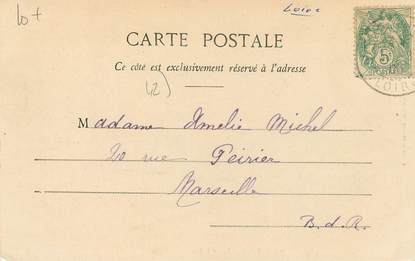 10+
Loire
CARTE POSTALE
Ce côté est exclusivement réservé à l'adresse
(2)
Madame Amelie Michel
20 rue Peirier
Marseille
B. d. R.
5c
LOIRE